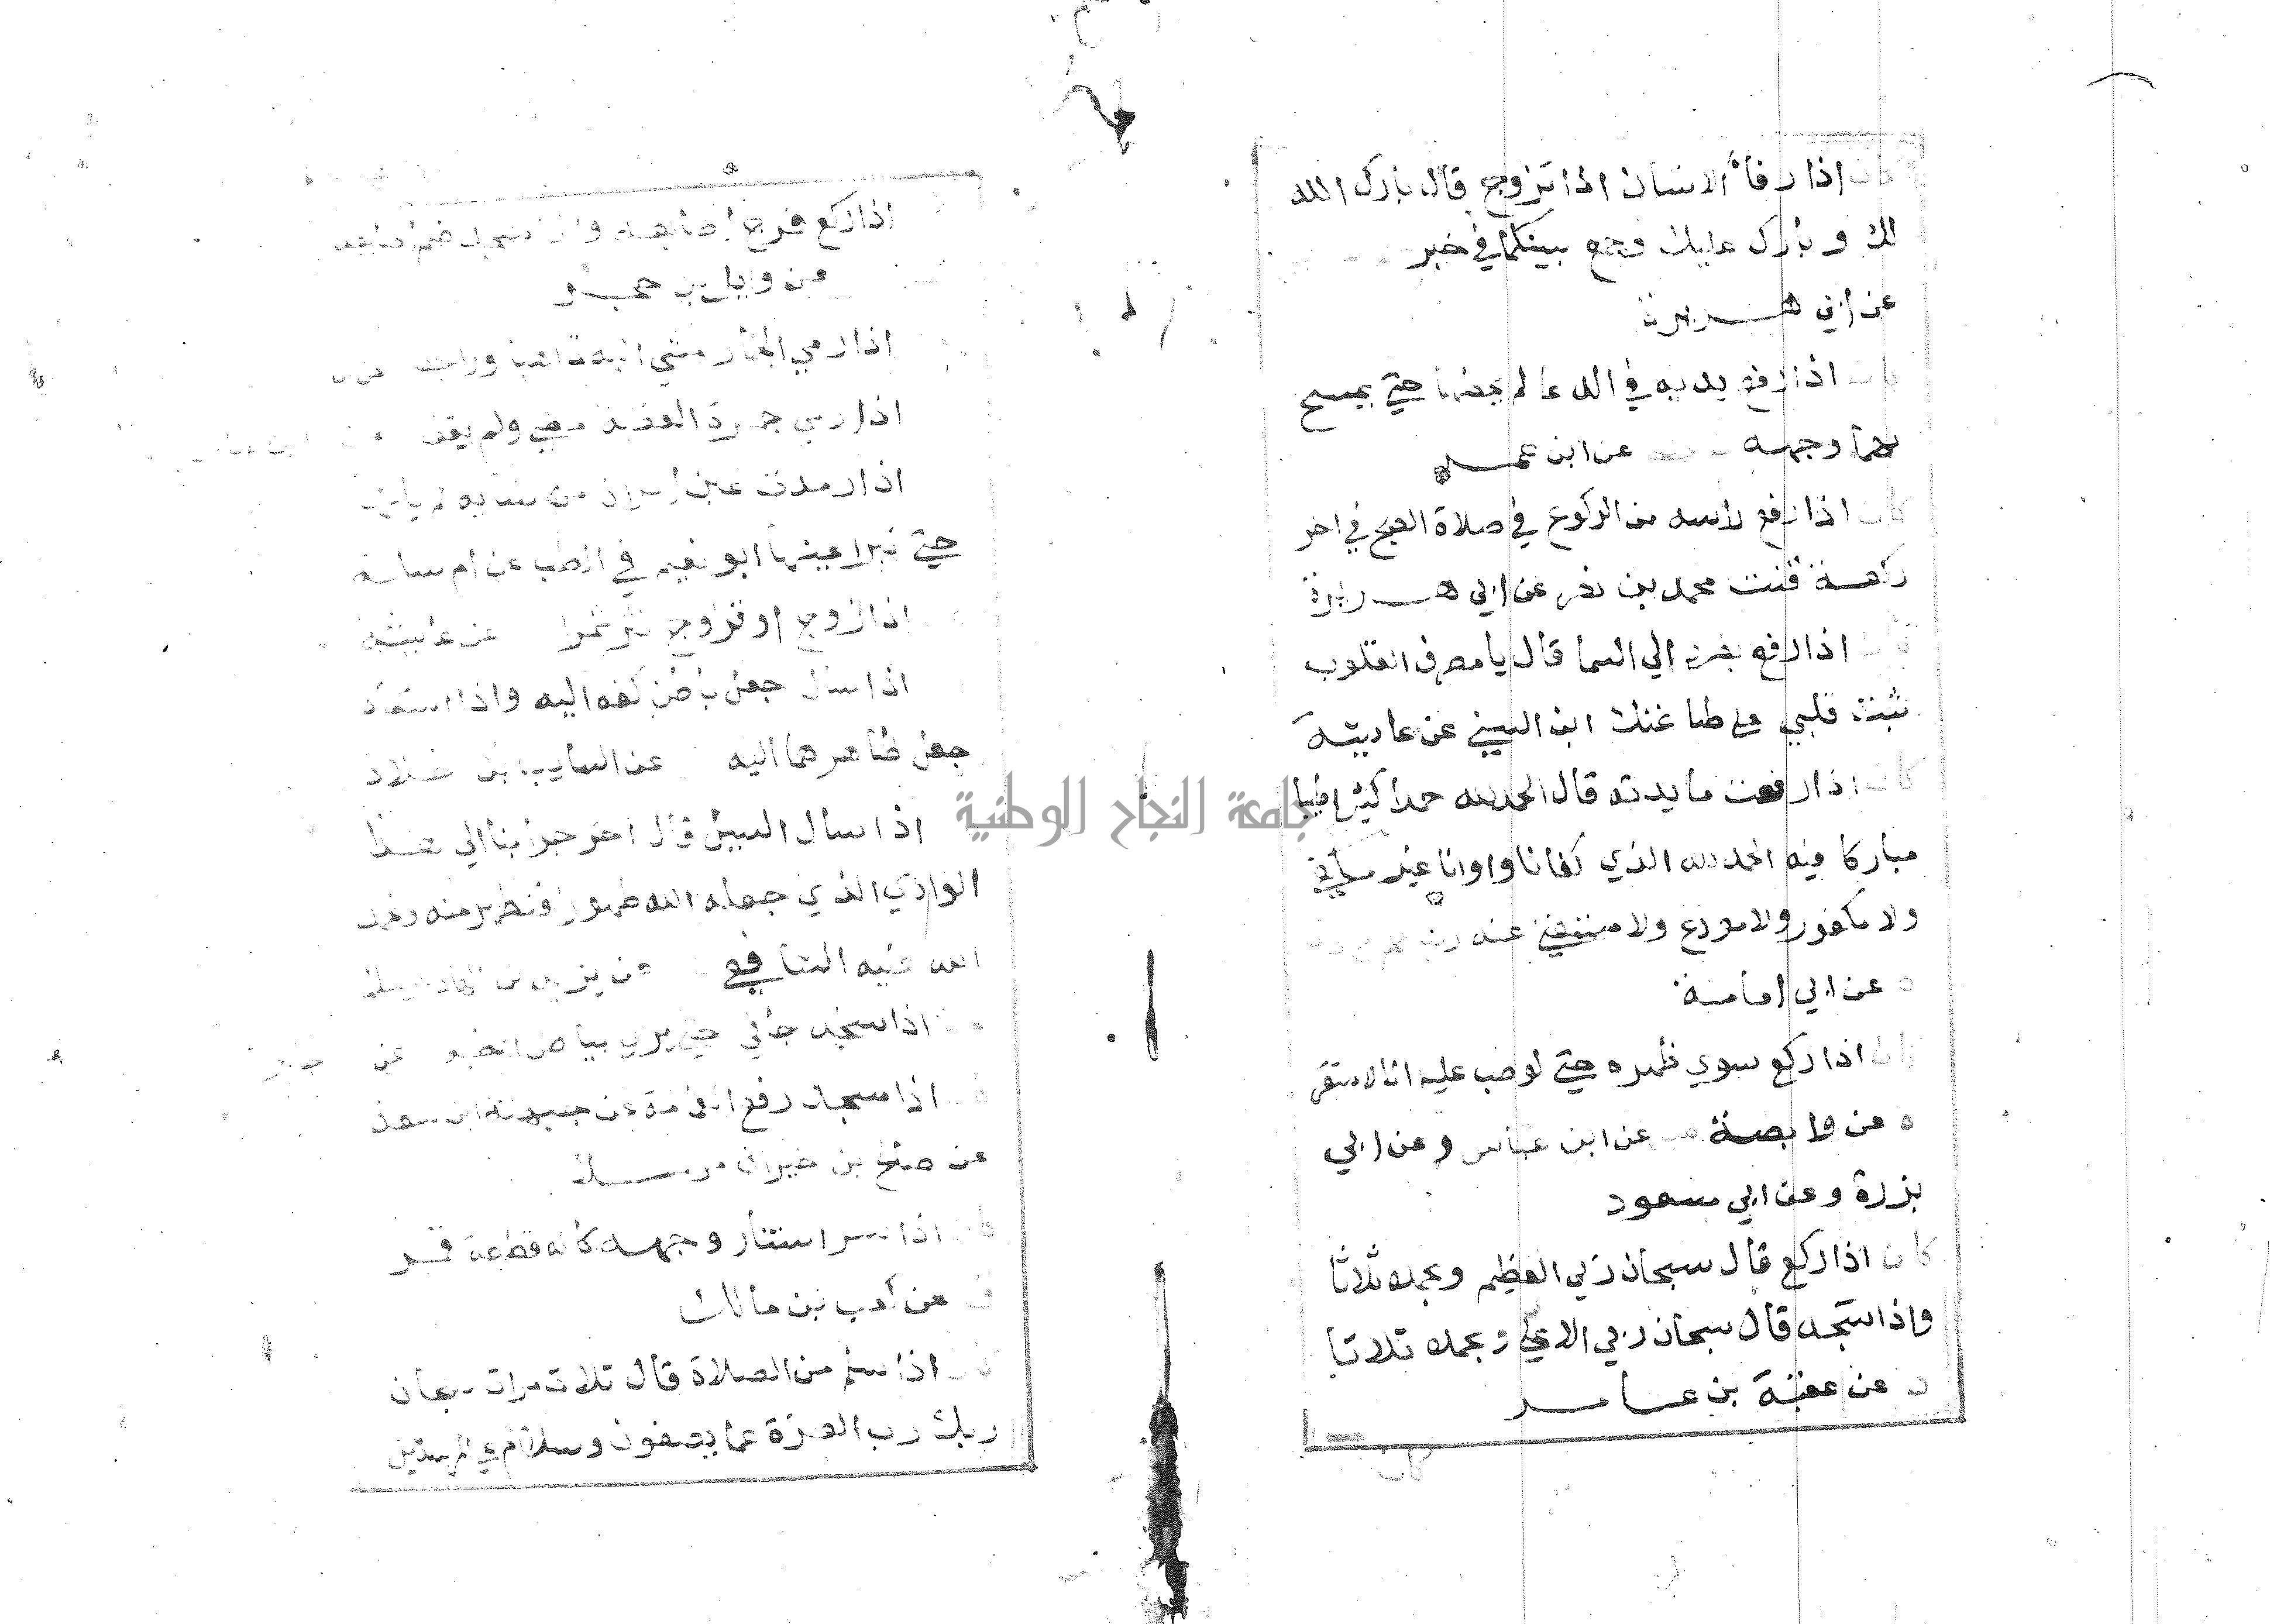 كان اذا رفأ الانسان اذا تزوج قال بارك الله
لك وبارك عليك وجمع بينكما في خير
عن ابي هريرة
كان اذا رفع يديه في الدعا لم يحطهما حتي يمسح
بهما وجهه عن ابن عمر
كان اذا رفع راسه من الركوع في صلاة الصبح في اخر
ركعة قنت محمد بن نصر عن ابي هريرة
كان اذا رفع بصره الي السما قال يا مصرف القلوب
ثبت قلبي علي طاعتك ابن السني عن عايشة
كان اذا رفعت مايدته قال الحمد لله حمدا كثيرا طيبا
مباركا فيه الحمد لله الذي كفانا واوانا غير مكفي
ولا مكفور ولا مودع ولا مستغني عنه ربنا
عن ابي امامة
كان اذا ركع سوي ظهره حتي لو صب عليه الما لاستقر
ه عن وابصة عن ابن عباس وعن ابي
برزة وعن ابي مسعود
كان اذا ركع قال سبحان ربي العظيم وبحمده ثلاثا
واذا سجد قال سبحان ربي الاعلي وبحمده ثلاثا
د عن عقبة بن عامر
كان
اذا ركع فرج اصابعه واذا سجد ضم اصابعه
عن وايل بن حجر
اذا رمي الجمار مشي اليه ذاهبا وراجعا
اذا رمي جمرة العقبة مضي ولم يقف
اذا رمدت عين امراة من نسايه لم ياتها
حتي تبرا عينها ابو نعيم في الطب عن ام سلمة
اذا زوج او تزوج نثر تمرا عن عايشة
اذا سال جعل باطن كفه اليه واذا استعاذ
جعل ظاهرهما اليه عن السايب بن خلاد
اذا سال السيل قال اخرجوا بنا الي هذا
الوادي الذي جعله الله طهورا فنتطهر منه ونحمد
الله عليه الشافعي عن يزيد بن الهاد مرسلا
اذا سجد جافي حتي يري بياض ابطيه عن جابر
اذا سجد رفع العمامة عن جبهته ابن سعد
عن صالح بن خيران مرسلا
كان اذا سر استنار وجهه كانه قطعة قمر
ق عن كعب بن مالك
كان اذا سلم من الصلاة قال ثلاث مرات سبحان
ربك رب العزة عما يصفون وسلام علي المرسلين
جامعة النجاح الوطنية